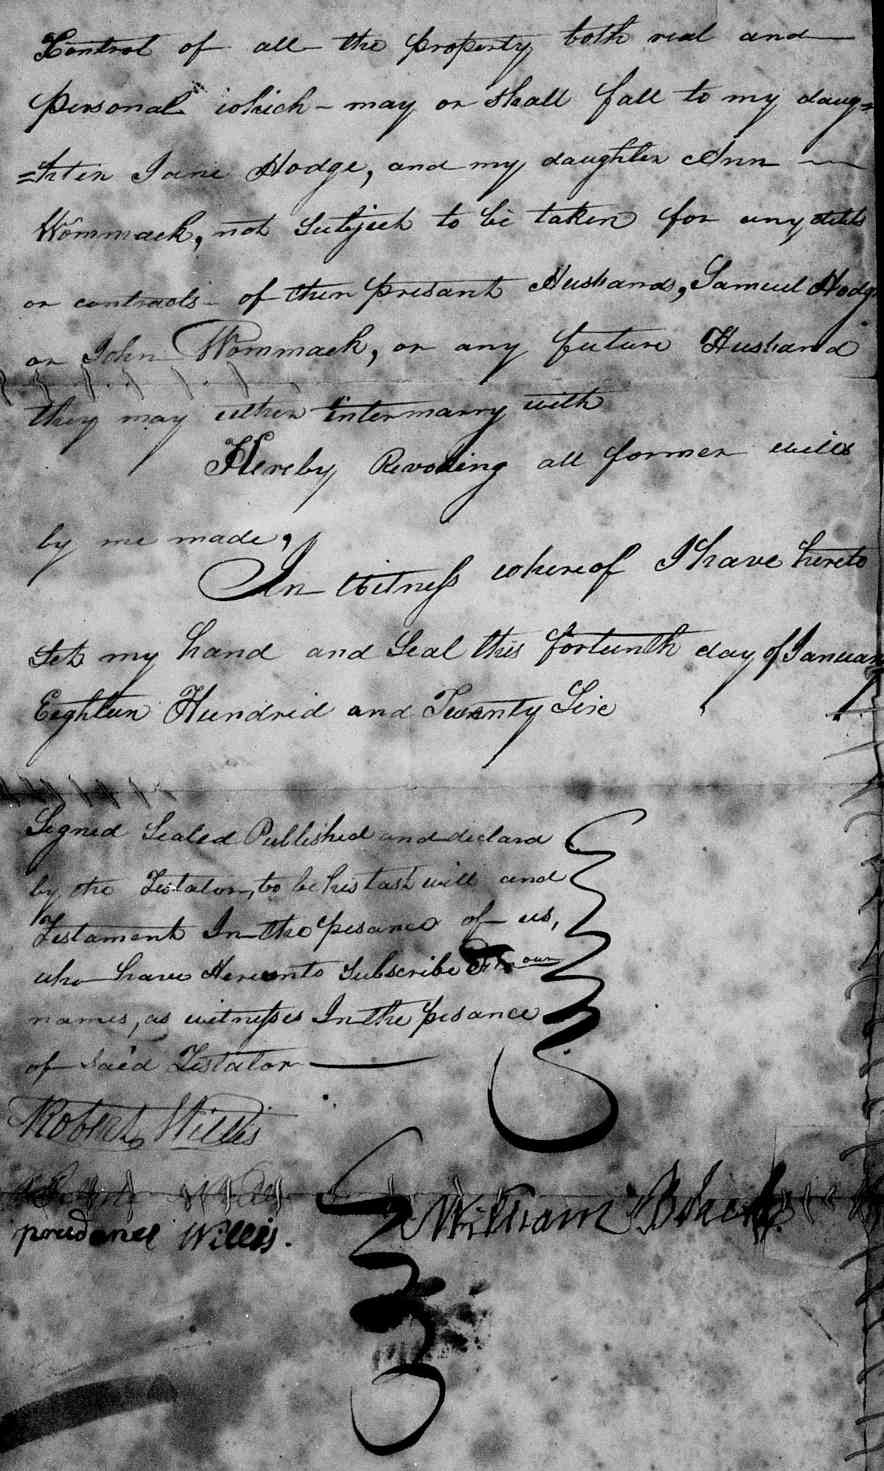 Control of all the property both real and
personal which - may or shall fall to my daug=
=hter Jane Hodge, and my daughter Ann
Wommack, not subject to be taken for any debts
or contracts - of their presant Husbands, Samuel Hodge
or John Wommack, or any future Husband
they may either intermarry with
Hereby Revoking all former wills
by me made,
In Witness whereof I have hereto
Set my hand and Seal this forteenth day of January
Eighteen Hundred and Twenty Six
Signed Sealed Published and declard
by the Testator, to be his last will and
Testament In the pesance of us,
who have Hereunto Subscribed our
names, as witnesses In the pesance
of said Testator
Robert Willis
prudence Willis.
William